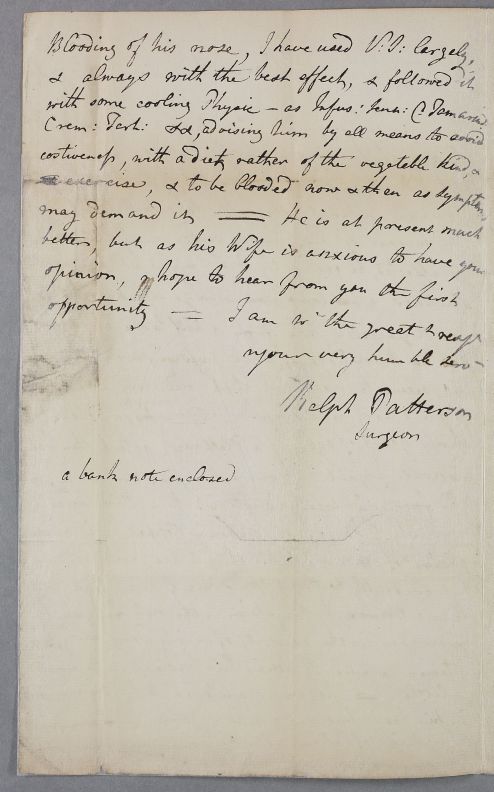 Blooding of his nose, I have used V: S: largely,
& always with the best effect, & followed it
with some cooling Physic – as Infus: Senn: C Tamarind
Crem: Tart: &&, advising him by all means to avoid
costiveness, with a diet rather of the vegetable kind, &
exercise, & to be blooded now & then as symptoms
may demand it == He is at present much
better, but as his Wife is anxious to have your
opinion, hope to hear from you the first
opportunity = I am wt the great respt
your very humble servt
Ralph Patterson
Surgeon
a bank note enclosed